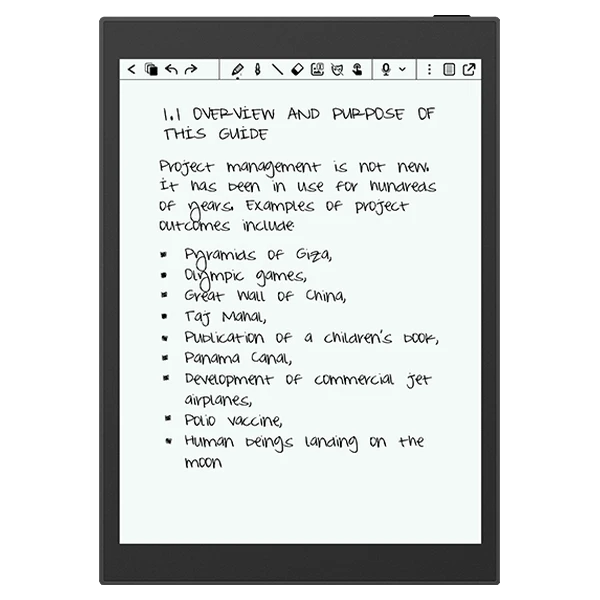 1.1 OVERVIEW AND PURPOSE OF
THIS GUIDE
Project management is not new.
It has been in use for hundreds
of years. Examples of project
outcomes include
▪ Pyramids of Giza,
▪ Olympic games,
▪ Great Wall of China,
▪ Taj Mahal,
▪ Publication of a children's book,
▪ Panama Canal,
▪ Development of commercial jet
airplanes,
▪ Polio vaccine,
▪ Human beings landing on the
moon